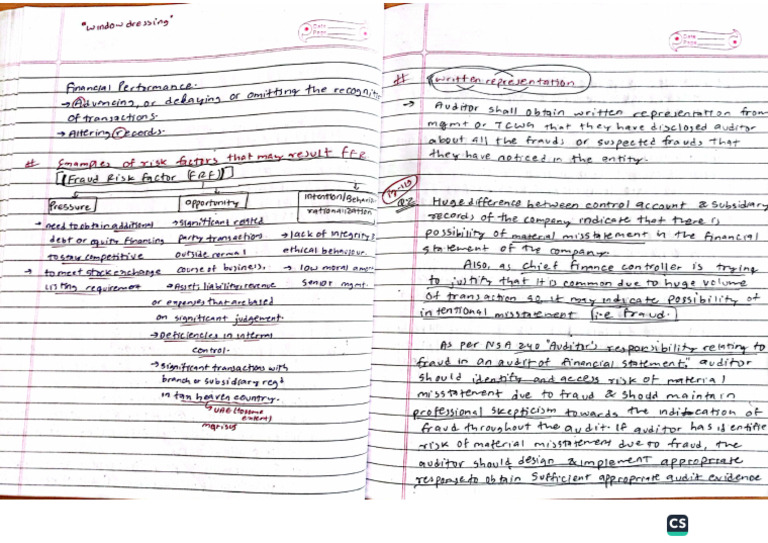 "window dressing"
Date
Page
Financial Performance.
→ Advancing, or delaying or omitting the recogniti
of transactions.
→ Altering records.
# Examples of risk factors that may result FFR
[Fraud Risk Factor (FRF)]
Pressure
→ need to obtain additional
debt or equity financing
to stay competitive
→ to meet stock exchange
listing requirement
Opportunity
→ significant related
party transactions
outside normal
course of business.
→ Assets, liability, revenue
or expenses that are based
on significant judgement.
→ Deficiencies in internal
control.
→ significant transactions with
branch or subsidiary reg
in tax heaven country.
UAE (to some
extent)
Intention/Behavio
rationalization
→ lack of integrity &
ethical behaviour.
→ low moral amon
senior mgmt.
Date
Page
# Written representation
→ Auditor shall obtain written representation from
mgmt or TCWG that they have disclosed auditor
about all the frauds or suspected frauds that
they have noticed in the entity.
Q2 Huge difference between control account & subsidiary
records of the company indicate that there is
possibility of material misstatement in the financial
statement of the company.
Also, as chief finance controller is trying
to justify that it is common due to huge volume
of transaction so, it may indicate possibility of
intentional misstatement i.e fraud.
As per NSA 240 "Auditor's responsibility relating to
fraud in an audit of financial statement," auditor
should identify and access risk of material
misstatement due to fraud & should maintain
professional skepticism towards the indication of
fraud throughout the audit. If auditor has identifie
risk of material misstatement due to fraud, the
auditor should design & implement appropriate
response to obtain sufficient appropriate audit evidence
CS